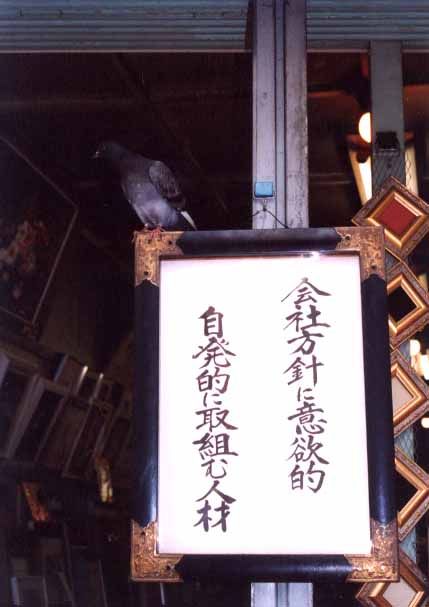 会社方針に意欲的
自発的に取組む人材